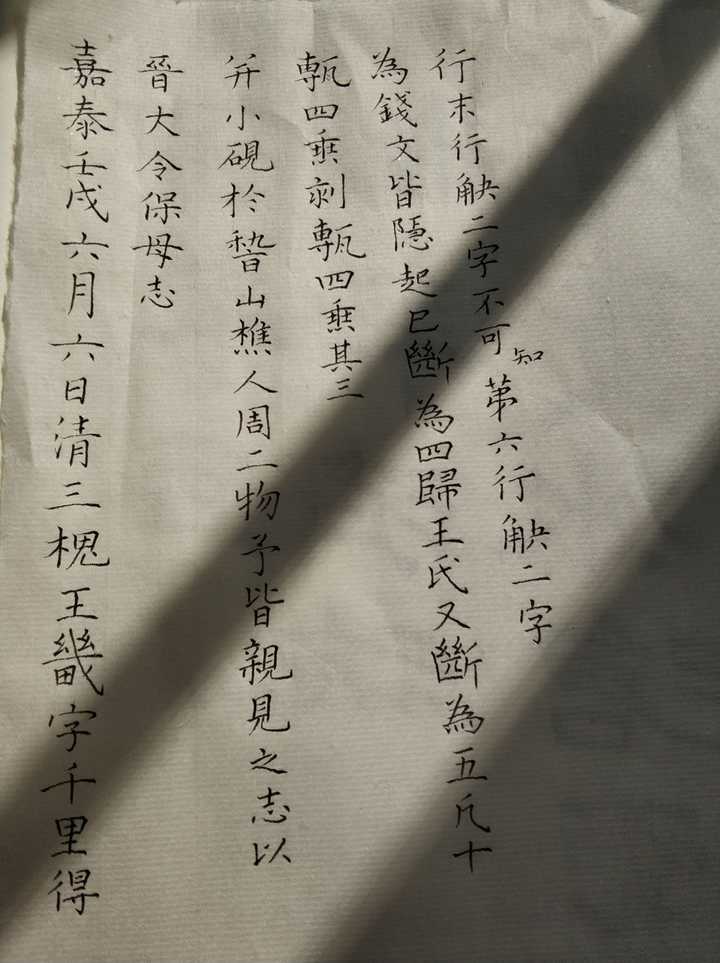 嘉泰壬戌六月六日清三槐王畿字千里得
晉大令保母志
并小硯於稽山樵人周二物予皆親見之志以
甎四垂剥甎四垂其三
為錢文皆隱起已斷為四歸王氏又斷為五凡十
行末行觖二字不可知苐六行觖二字